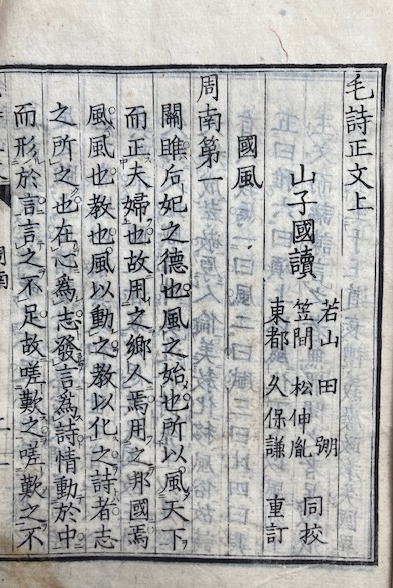 毛詩正文上
山子國讀
若山 田 弸
笠間 松伸胤 同校
東都 久保謙 重訂
國風
周南第一
關雎后妃之德也風之始也所以風天下
而正夫婦也故用之鄉人焉用之邦國焉
風風也教也風以動之教以化之詩者志
之所之也在心為志發言為詩情動於中
而形於言言之不足故嗟歎之嗟歎之不
周南